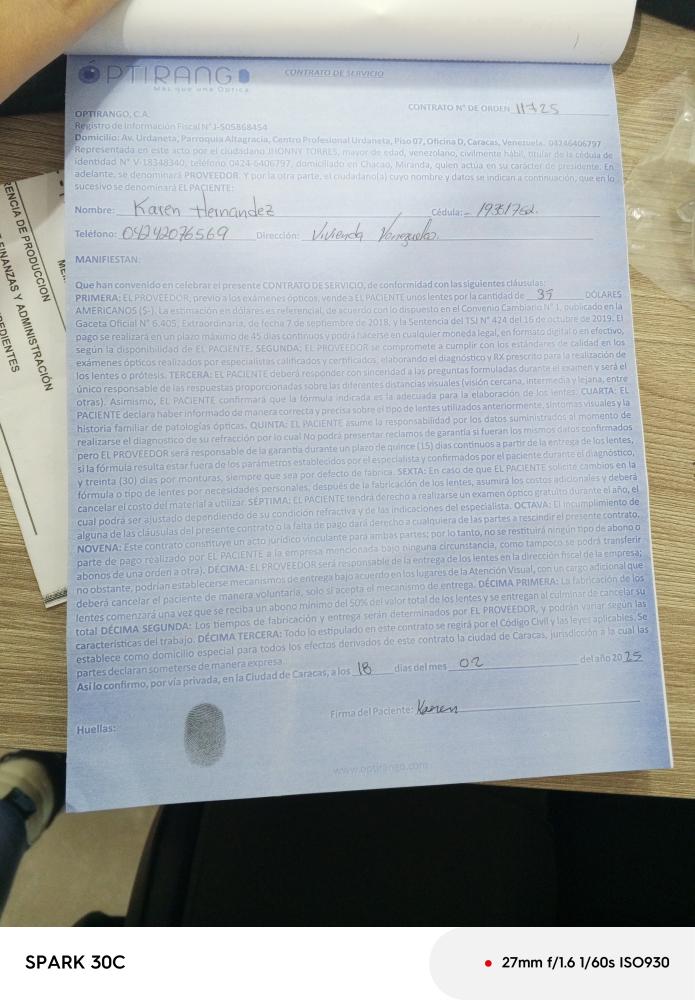 ÓPTIRANGO
Más que una Óptica
CONTRATO DE SERVICIO
CONTRATO N° DE ORDEN 11725
OPTIRANGO, C.A.
Registro de Información Fiscal N° J-505868454
Domicilio: Av. Urdaneta, Parroquia Altagracia, Centro Profesional Urdaneta, Piso 07, Oficina D, Caracas, Venezuela. 04246406797
Representada en este acto por el ciudadano JHONNY TORRES, mayor de edad, venezolano, civilmente hábil, titular de la cédula de
identidad N° V-18348340, teléfono 0424-6406797, domiciliado en Chacao, Miranda, quien actúa en su carácter de presidente. En
adelante, se denominará PROVEEDOR. Y por la otra parte, el ciudadano(a) cuyo nombre y datos se indican a continuación, que en lo
sucesivo se denominará EL PACIENTE:
Nombre: Karen Hernandez Cédula: - 19351762.
Teléfono: 04242076569 Dirección: Vivienda Venezuela.
MANIFIESTAN:
Que han convenido en celebrar el presente CONTRATO DE SERVICIO, de conformidad con las siguientes cláusulas:
PRIMERA: EL PROVEEDOR, previo a los exámenes ópticos, vende a EL PACIENTE unos lentes por la cantidad de 35 DÓLARES
AMERICANOS ($-). La estimación en dólares es referencial, de acuerdo con lo dispuesto en el Convenio Cambiario N° 1, publicado en la
Gaceta Oficial N° 6.405, Extraordinaria, de fecha 7 de septiembre de 2018, y la Sentencia del TSJ N° 424 del 16 de octubre de 2019. El
pago se realizará en un plazo máximo de 45 días continuos y podrá hacerse en cualquier moneda legal, en formato digital o en efectivo,
según la disponibilidad de EL PACIENTE. SEGUNDA: EL PROVEEDOR se compromete a cumplir con los estándares de calidad en los
exámenes ópticos realizados por especialistas calificados y certificados, elaborando el diagnóstico y RX prescrito para la realización de
los lentes o prótesis. TERCERA: EL PACIENTE deberá responder con sinceridad a las preguntas formuladas durante el examen y será el
único responsable de las respuestas proporcionadas sobre las diferentes distancias visuales (visión cercana, intermedia y lejana, entre
otras). Asimismo, EL PACIENTE confirmará que la fórmula indicada es la adecuada para la elaboración de los lentes. CUARTA: EL
PACIENTE declara haber informado de manera correcta y precisa sobre el tipo de lentes utilizados anteriormente, síntomas visuales y la
historia familiar de patologías ópticas. QUINTA: EL PACIENTE asume la responsabilidad por los datos suministrados al momento de
realizarse el diagnostico de su refracción por lo cual No podrá presentar reclamos de garantía si fueran los mismos datos confirmados
pero EL PROVEEDOR será responsable de la garantía durante un plazo de quince (15) días continuos a partir de la entrega de los lentes,
si la fórmula resulta estar fuera de los parámetros establecidos por el especialista y confirmados por el paciente durante el diagnóstico,
y treinta (30) días por monturas, siempre que sea por defecto de fabrica. SEXTA: En caso de que EL PACIENTE solicite cambios en la
fórmula o tipo de lentes por necesidades personales, después de la fabricación de los lentes, asumirá los costos adicionales y deberá
cancelar el costo del material a utilizar. SÉPTIMA: EL PACIENTE tendrá derecho a realizarse un examen óptico gratuito durante el año, el
cual podrá ser ajustado dependiendo de su condición refractiva y de las indicaciones del especialista. OCTAVA: El incumplimiento de
alguna de las cláusulas del presente contrato o la falta de pago dará derecho a cualquiera de las partes a rescindir el presente contrato.
NOVENA: Este contrato constituye un acto jurídico vinculante para ambas partes; por lo tanto, no se restituirá ningún tipo de abono o
parte de pago realizado por EL PACIENTE a la empresa mencionada bajo ninguna circunstancia, como tampoco se podrá transferir
abonos de una orden a otra). DÉCIMA: EL PROVEEDOR será responsable de la entrega de los lentes en la dirección fiscal de la empresa;
no obstante, podrían establecerse mecanismos de entrega bajo acuerdo en los lugares de la Atención Visual, con un cargo adicional que
deberá cancelar el paciente de manera voluntaria, solo si acepta el mecanismo de entrega. DÉCIMA PRIMERA: La fabricación de los
lentes comenzará una vez que se reciba un abono mínimo del 50% del valor total de los lentes y se entregan al culminar de cancelar su
total DÉCIMA SEGUNDA: Los tiempos de fabricación y entrega serán determinados por EL PROVEEDOR, y podrán variar según las
características del trabajo. DÉCIMA TERCERA: Todo lo estipulado en este contrato se regirá por el Código Civil y las leyes aplicables. Se
establece como domicilio especial para todos los efectos derivados de este contrato la ciudad de Caracas, jurisdicción a la cual las
partes declaran someterse de manera expresa.
Así lo confirmo, por vía privada, en la Ciudad de Caracas, a los 18 días del mes 02 del año 2025
Firma del Paciente: Karen
Huellas:
www.optirango.com
ENCIA DE PRODUCCION
FINANZAS Y ADMINISTRACIÓN
EDIENTES
SPARK 30C
27mm f/1.6 1/60s ISO930